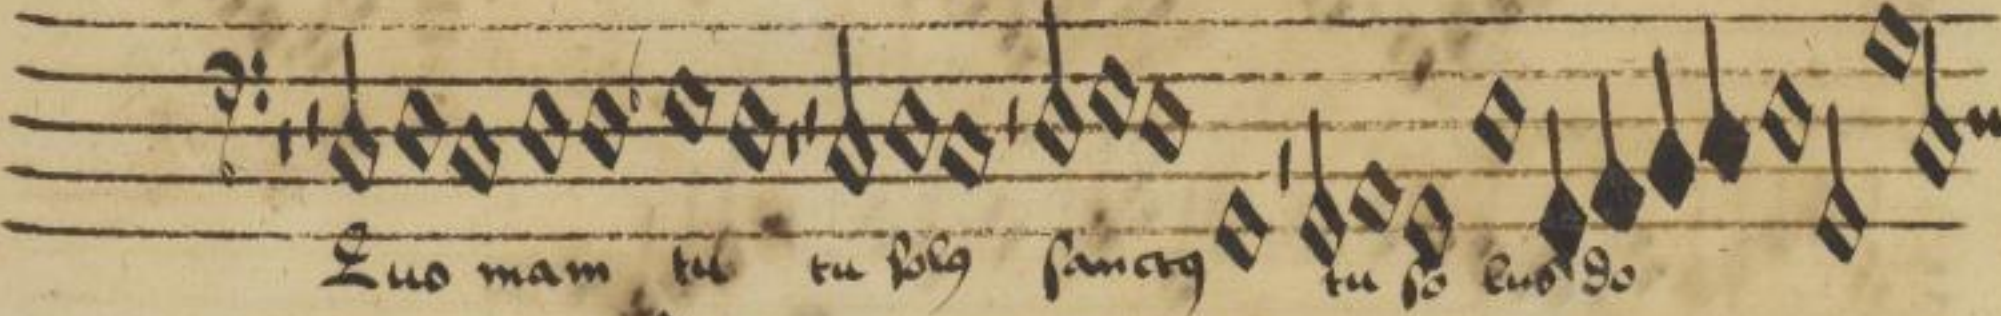 Quo niam tu tu solꝰ sanctꝰ tu so lus do